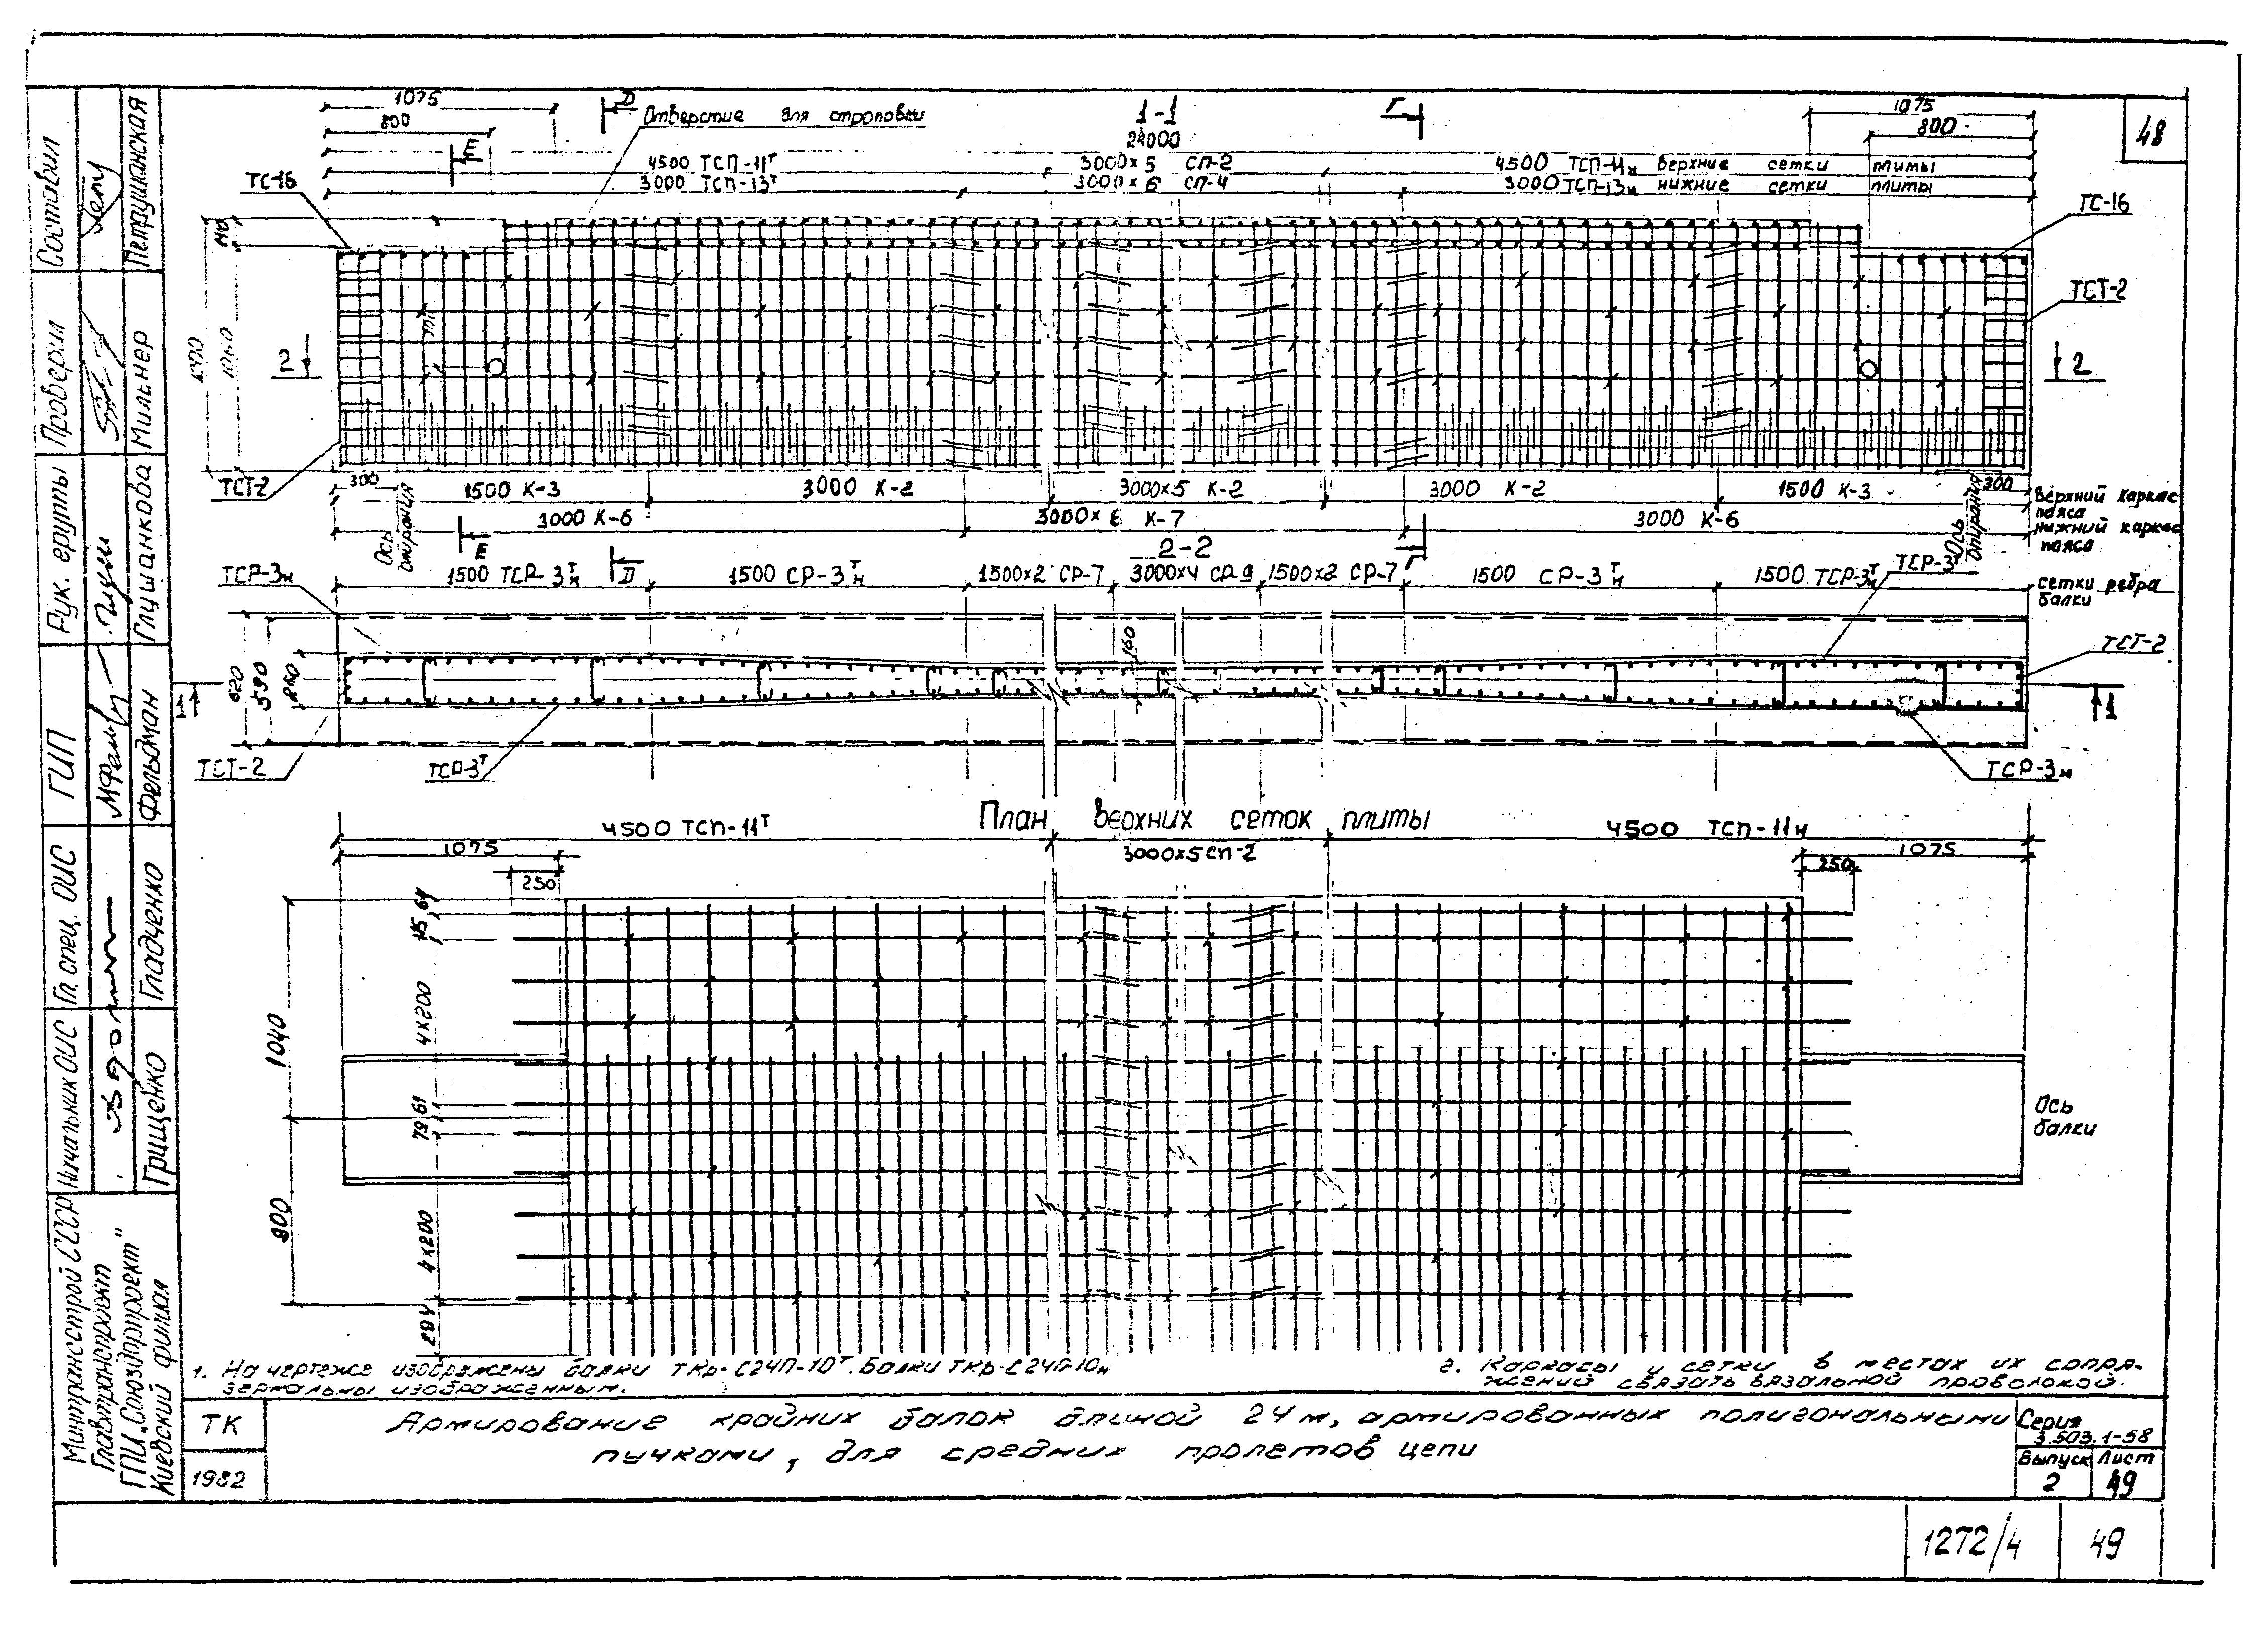 48
1-1
24000
1075
800
Д
Отверстие для строповки
Г
1075
800
Е
4500 ТСП-11т
3000×5 СП-2
4500 ТСП-11н верхние сетки плиты
3000 ТСП-13т
3000×6 СП-4
3000 ТСП-13н нижние сетки плиты
ТС-16
ТС-16
ТСТ-2
140
1200
1060
2
2
ТСТ-2
300
1500 К-3
3000 К-2
3000×5 К-2
3000 К-2
1500 К-3
300
Верхний каркас
пояса
Ось
опирания
3000 К-6
3000×6 К-7
3000 К-6
Ось
опирания
нижний каркас
пояса
Е
Д
Г
2-2
ТСР-3н
1500 ТСР-3тн
1500 СР-3тн
1500×2 СР-7
3000×4 СР-9
1500×2 СР-7
1500 СР-3тн
1500 ТСР-3тн
ТСР-3т
сетки ребра
балки
620
590
260
160
1
1
ТСТ-2
ТСТ-2
ТСР-3т
ТСР-3н
План верхних сеток плиты
4500 ТСП-11т
3000×5 СП-2
4500 ТСП-11н
1075
1075
250
250
64
4×200
1040
61
79
Ось
балки
800
4×200
1. На чертеже изображены балки ТКр-С24П-10т. Балки ТКр-С24П-10н
зеркальны изображенным.
2. Каркасы и сетки в местах их сопря-
жений связать вязальной проволокой.
ТК
1982
Армирование крайних балок длиной 24 м, армированных полигональными
пучками, для средних пролетов цепи
Серия
3.503.1-58
Выпуск
2
Лист
49
1272/4
49
Составил
Петрушанская
Проверил
Мильнер
Рук. группы
Глушанкова
ГИП
Фельдман
Гл. спец. ОИС
Гладченко
Начальник ОИС
Грищенко
Минтрансстрой СССР
Главтранспроект
ГПИ „Союздорпроект"
Киевский филиал